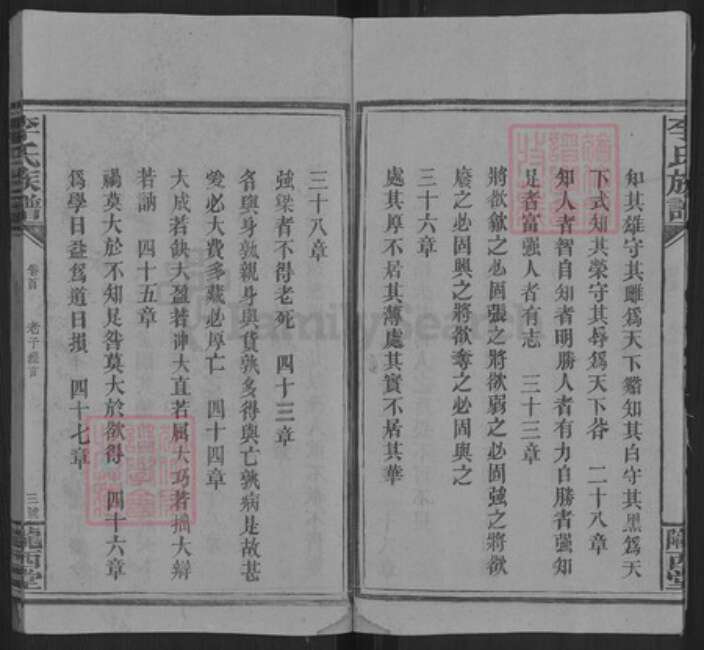 李氏族譜
隴西堂
知其雄守其雌爲天下谿知其白守其黑爲天
下式知其榮守其辱爲天下谷 二十八章
知人者智自知者明勝人者有力自勝者强知
足者富强人者有志 三十三章
將欲歙之必固張之將欲弱之必固強之將欲
廢之必固興之將欲奪之必固與之
三十六章
處其厚不居其薄處其實不居其華
三十八章
強梁者不得老死 四十三章
名與身孰親身與貨孰多得與亡孰病是故甚
愛必大費多藏必厚亡 四十四章
大成若缺大盈若沖大直若屈大巧若拙大辯
若訥 四十五章
禍莫大於不知足咎莫大於欲得 四十六章
爲學日益爲道日損 四十七章
李氏族譜
卷首
老子
三
隴西堂
FamilySearch